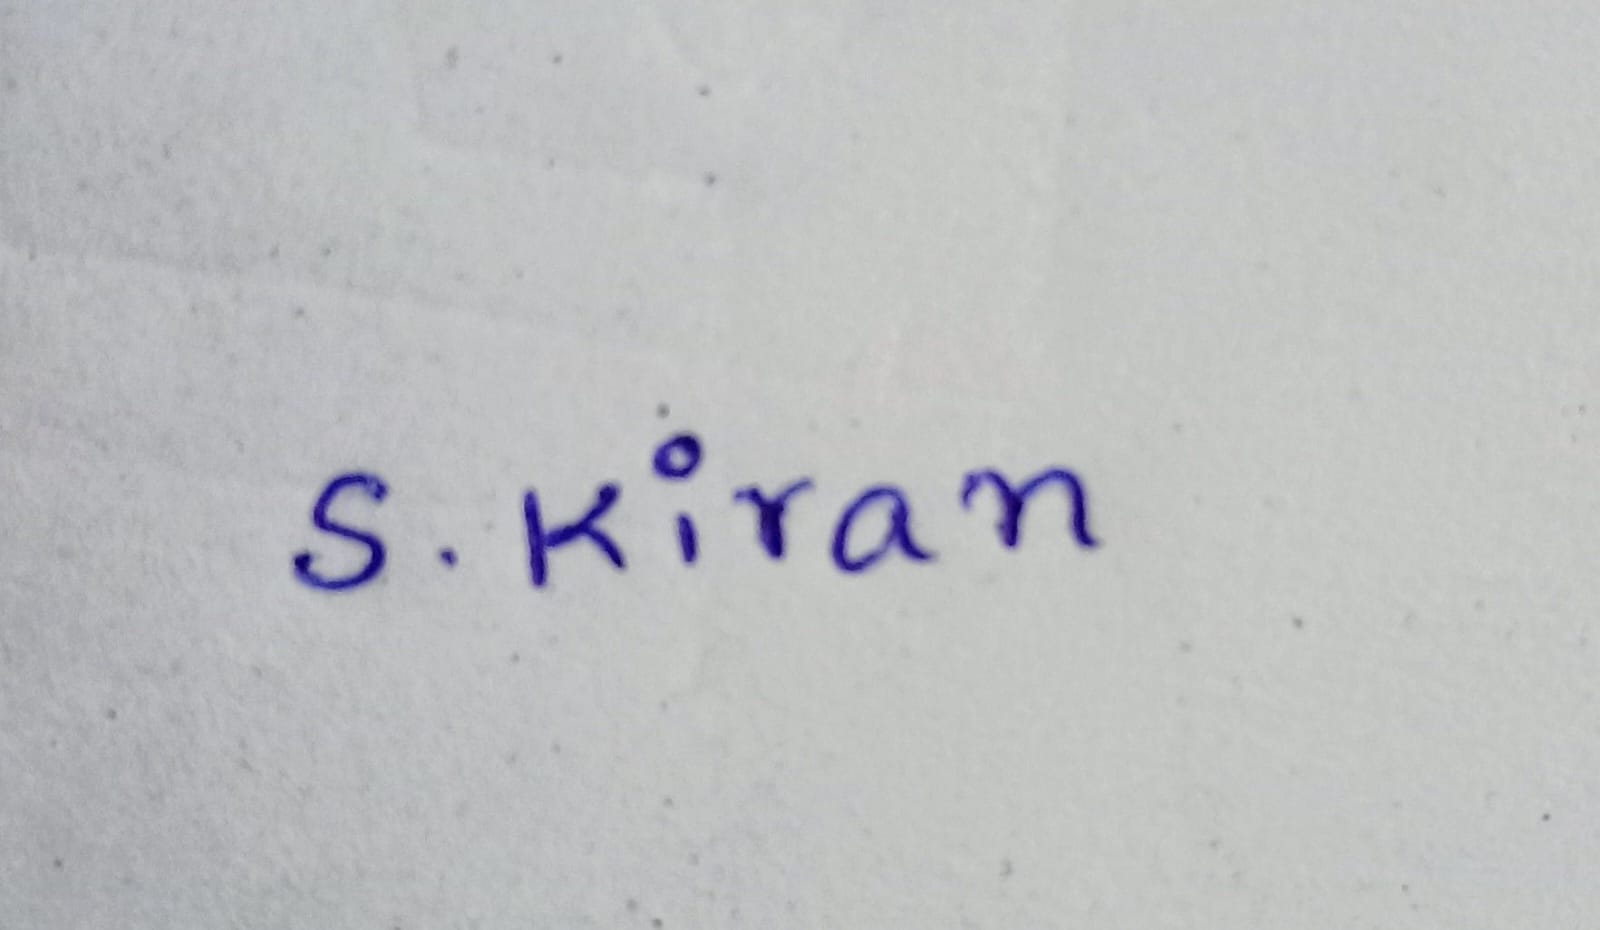 S. Kiran